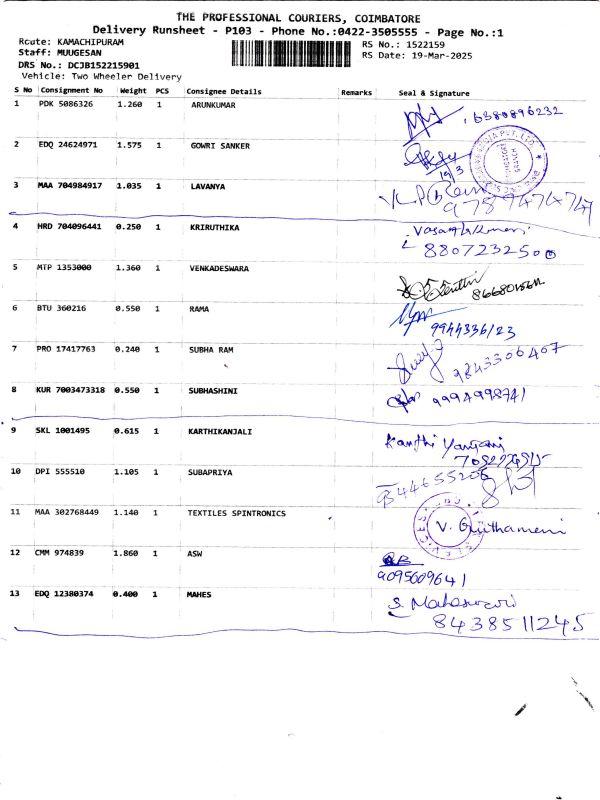 THE PROFESSIONAL COURIERS, COIMBATORE
Delivery Runsheet - P103 - Phone No.:0422-3505555 - Page No.:1
Route: KAMACHIPURAM RS No.: 1522159
Staff: MUUGESAN RS Date: 19-Mar-2025
DRS No.: DCJB152215901
Vehicle: Two Wheeler Delivery
S No Consignment No Weight PCS Consignee Details Remarks Seal & Signature
1 PDK 5086326 1.260 1 ARUNKUMAR 6380896232
2 EDQ 24624971 1.575 1 GOWRI SANKER 19/3
3 MAA 704984917 1.035 1 LAVANYA
4 HRD 704096441 0.250 1 KRIRUTHIKA
8807232500
5 MTP 1353000 1.360 1 VENKADESWARA
6 BTU 360216 0.550 1 RAMA
9944336123
7 PRO 17417763 0.240 1 SUBHA RAM 9843306407
8 KUR 7003473318 0.550 1 SUBHASHINI 9994998741
9 SKL 1001495 0.615 1 KARTHIKANJALI
10 DPI 555510 1.105 1 SUBAPRIYA
11 MAA 302768449 1.140 1 TEXTILES SPINTRONICS
V. Giithameni
12 CMM 974839 1.860 1 ASW
9095609641
13 EDQ 12380374 0.400 1 MAHES
S. Maheswari
8438511245